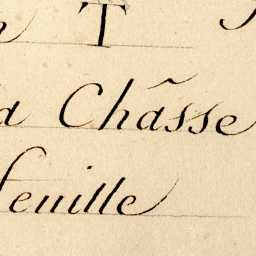 T
a Chãsse
feuille